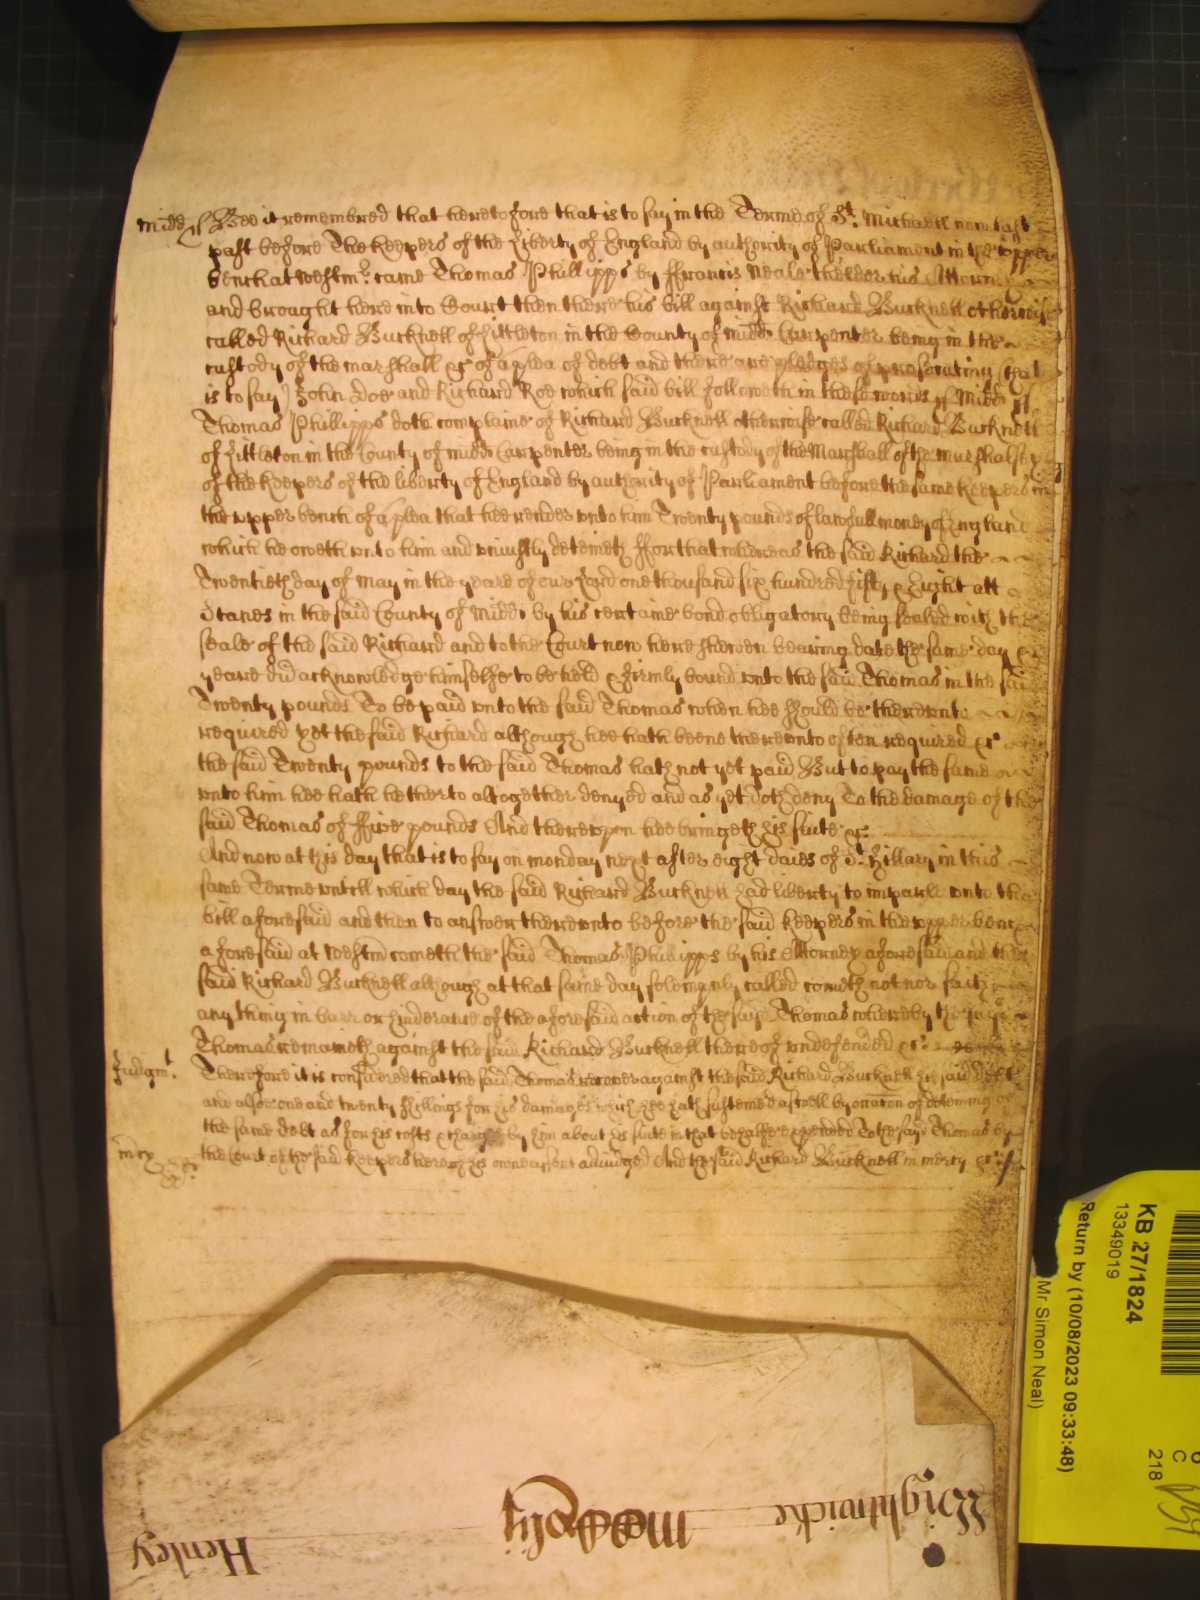 Midd ss Bee it remembred that heretofore that is to say in the Terme of St. Michaell now last
past before The Keepers of the liberty of England by authority of Parliament in the upper
bench at Westmr. came Thomas Phillipps by Francis Neale the elder his Attorney
and brought here into Court then there his bill against Richard Bucknell otherwise
called Richard Bucknell of Littleton in the County of Midd Carpenter being in the
custody of the marshall &c of a plea of debt and there are pledges of prosecuting (that
is to say) John Doe and Richard Roe which said bill followeth in these words ss Midd ss
Thomas Phillipps doth complaine of Richard Bucknell otherwise called Richard Bucknell
of Littleton in the County of Midd Carpenter being in the custody of the Marshall of the marshalsey
of the Keepers of the liberty of England by authority of Parliament before the same Keepers in
the upper bench of a plea that hee render unto him Twenty pounds of lawfull money of England
which he oweth unto him and uniustly deteineth ffor that whereas the said Richard the
Twentieth day of May in the yeare of our Lord one thousand six hundred fifty & Eight att
Stanes in the said County of Midd. by his certaine bond obligatory being sealed with the
seale of the said Richard and to the Court now here shewen bearing date the same day &
yeare did acknowledge himselfe to be held & firmly bound unto the said Thomas in the said
Twenty pounds To be paid unto the said Thomas when hee should be thereunto
required yet the said Richard although hee hath beene thereunto often required &c
the said Twenty pounds to the said Thomas hath not yet paid But to pay the same
unto him hee hath hitherto altogether denyed and as yet doth deny To the damage of the
said Thomas of ffive pounds And thereupon hee bringeth his suite &c.
And now at this day that is to say on monday next after eight daies of St. Hillary in this
same Terme untill which day the said Richard Bucknell had liberty to imparle unto the
bill aforesaid and then to answer thereunto before the said Keepers in the upper bench
aforesaid at Westm cometh the said Thomas Phillipps by his Attorney aforesaid and the
said Richard Bucknell although at that same day solempnly called cometh not nor saith
any thing in barr or hinderance of the aforesaid action of the said Thomas whereby the said
Thomas remaineth against the said Richard Bucknell thereof undefended &c.
Judgmt. Therefore it is considered that the said Thomas recover against the said Richard Bucknell his said debt
and alsoe one and twenty shillings for his damages which hee hath susteined aswell by occasion of deteining of
the same debt as for his costs & charges by him about his suite in that behalfe expended To the said Thomas by
mcy the Court of the said Keepers here of his owne assent adiudged And the said Richard Bucknell in mercy &c.
Wightwicke
Henley
KB 27/1824
13349019
Return by (10/08/2023 09:33:48)
Mr Simon Neal)
C
218